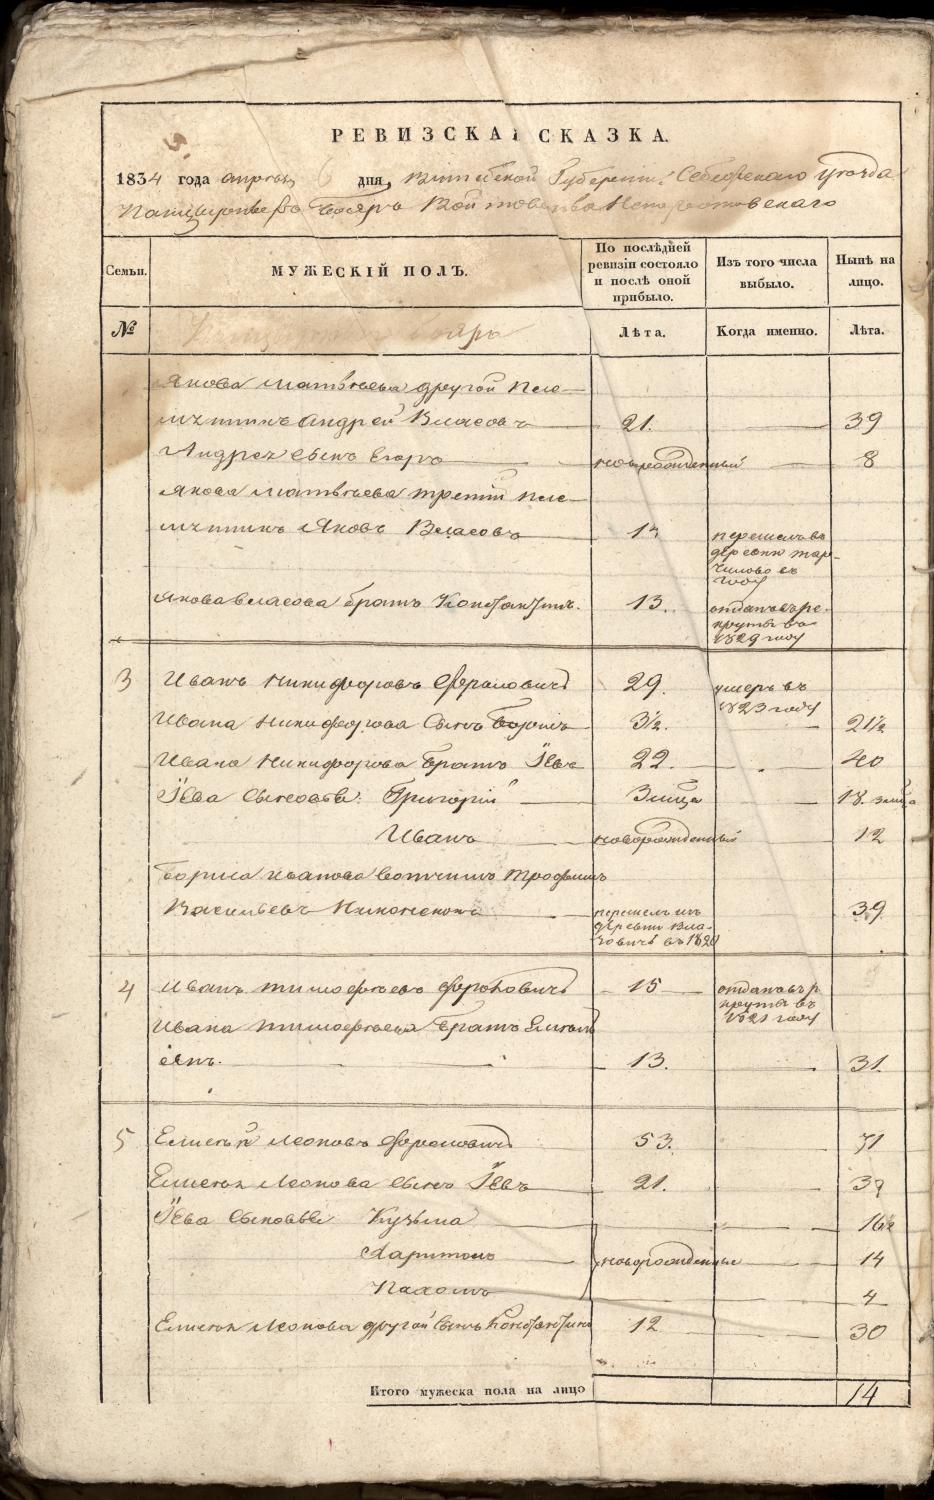 РЕВИЗСКАЯ СКАЗКА.
1834 года апреля 6 дня, Витебской Губернии Себежскаго уезда
Панцырныхъ Бояръ Войтовства Непоротовскаго
Семьи. МУЖЕСКІЙ ПОЛЪ. По послѣдней ревизіи состояло и послѣ оной прибыло. Изъ того числа выбыло. Нынѣ на лицо.
№ Панцырныхъ бояръ Лѣта. Когда именно. Лѣта.
Якова Матвѣева другой племянникъ Андрей Власовъ 21. 39
Андрея сынъ Егоръ новорожденный 8
Якова Матвѣева третій племянникъ Яковъ Власовъ перешелъ въ деревню въ году
Якова Власова братъ Константинъ. 13. отданъ въ рекруты въ 1829 году
3 Иванъ Никифоровъ 29. умеръ въ 1823 году
Ивана Никифорова сынъ Борисъ 3½. 21½
Ивана Никифорова братъ Іевъ 22. 40
Іева сыновья: Григорій 3 мѣсяца 18. 3 мѣсяца
Иванъ новорожденный 12
Бориса Иванова вотчимъ Трофимъ
Васильевъ перешелъ изъ деревни въ 1820 39
4 Иванъ Тимофѣевъ 15 отданъ въ рекруты въ 1821 году
Ивана Тимофѣева братъ Емельянъ. 13. 31.
5 Елисей Леоновъ 53. 71
Елисея Леонова сынъ Іевъ 21. 39
Іева сыновья Кузьма 16½
Харитонъ новорожденные 14
Пахомъ 4
Елисея Леонова другой сынъ Константинъ 12 30
Итого мужеска пола на лицо 14